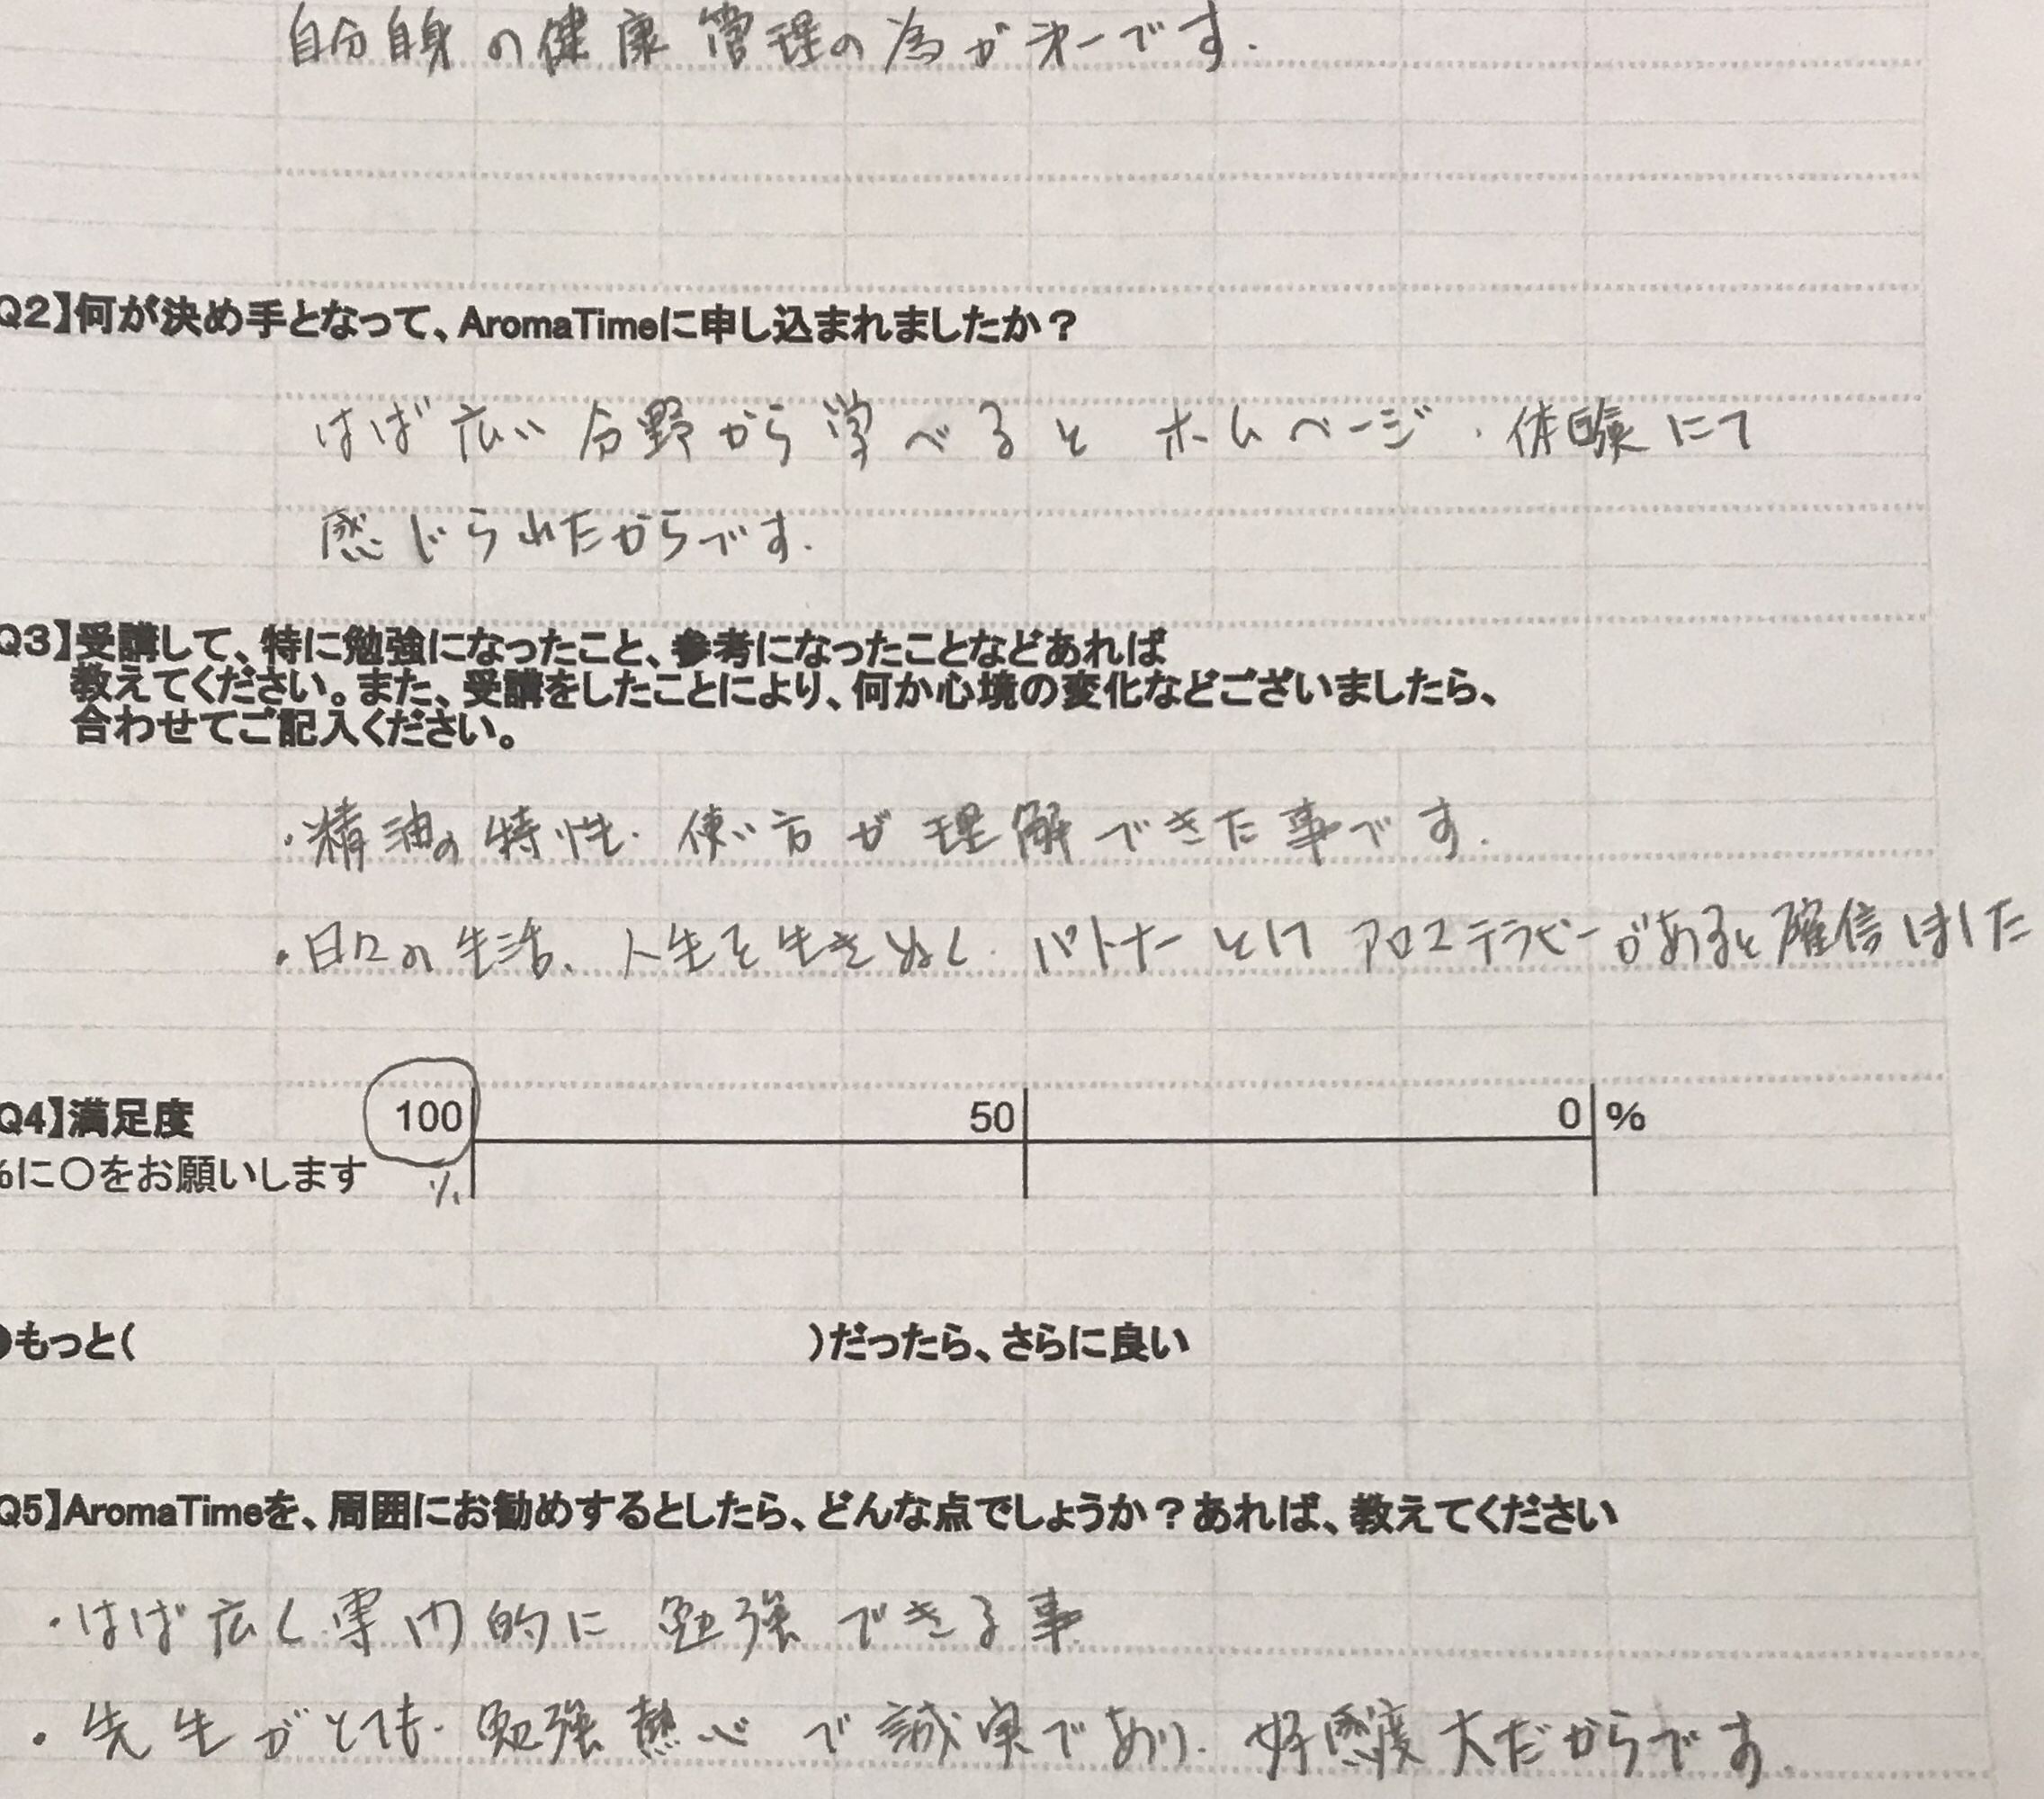 自分自身の健康管理の為が第一です.
Q2】何が決め手となって、AromaTimeに申し込まれましたか？
はば広い分野から学べるとホームページ・体験にて
感じられたからです.
Q3】受講して、特に勉強になったこと、参考になったことなどあれば
教えてください。また、受講をしたことにより、何か心境の変化などございましたら、
合わせてご記入ください。
・精油の特性・使い方が理解できた事です.
・日々の生活、人生を生きぬく パートナーとして アロマテラピーがあると確信しました
Q4】満足度 100 50 0 %
%に○をお願いします %
●もっと( )だったら、さらに良い
Q5】AromaTimeを、周囲にお勧めするとしたら、どんな点でしょうか？あれば、教えてください
・はば広く専門的に勉強できる事
・先生がとても勉強熱心で誠実であり、好感度大だからです.